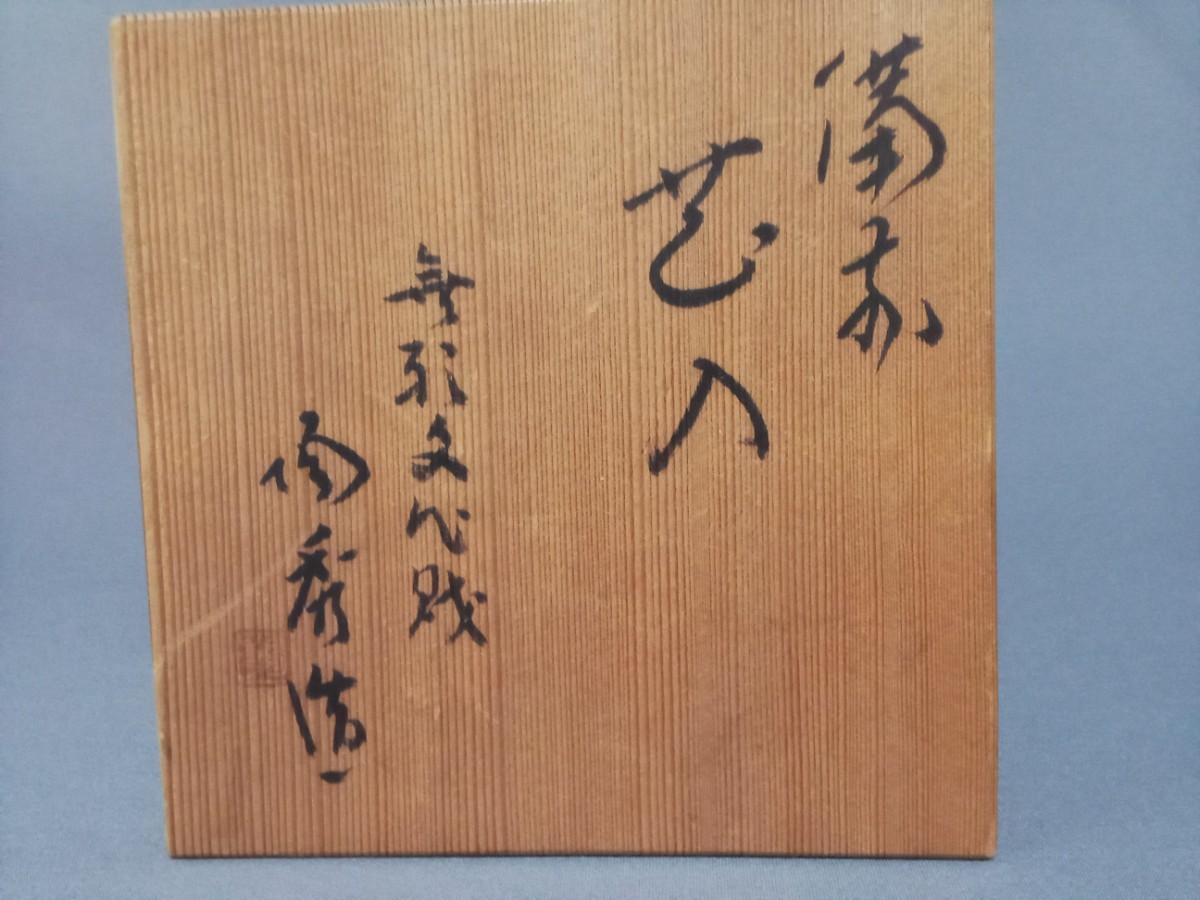 備前
花入
無形文化財
陶秀造